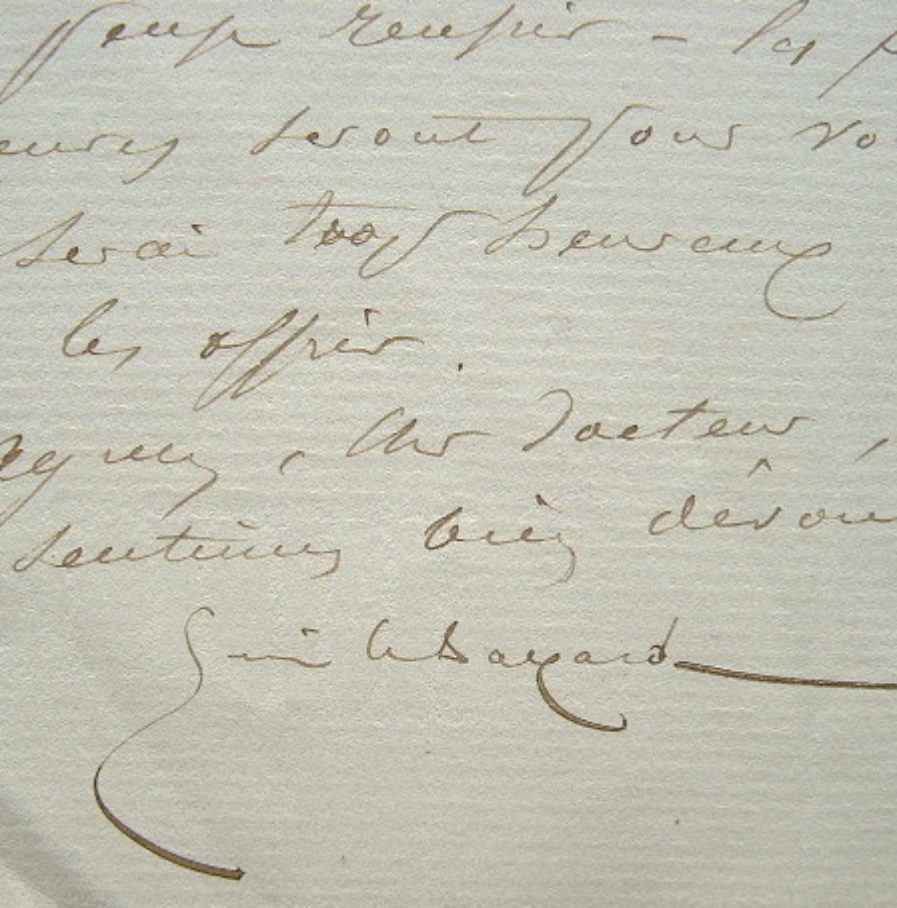 peux réussir - les p
eures seront pour vo
serai trop heureux
les offrir.
Agréez, Cher Docteur,
sentiments bien dévou